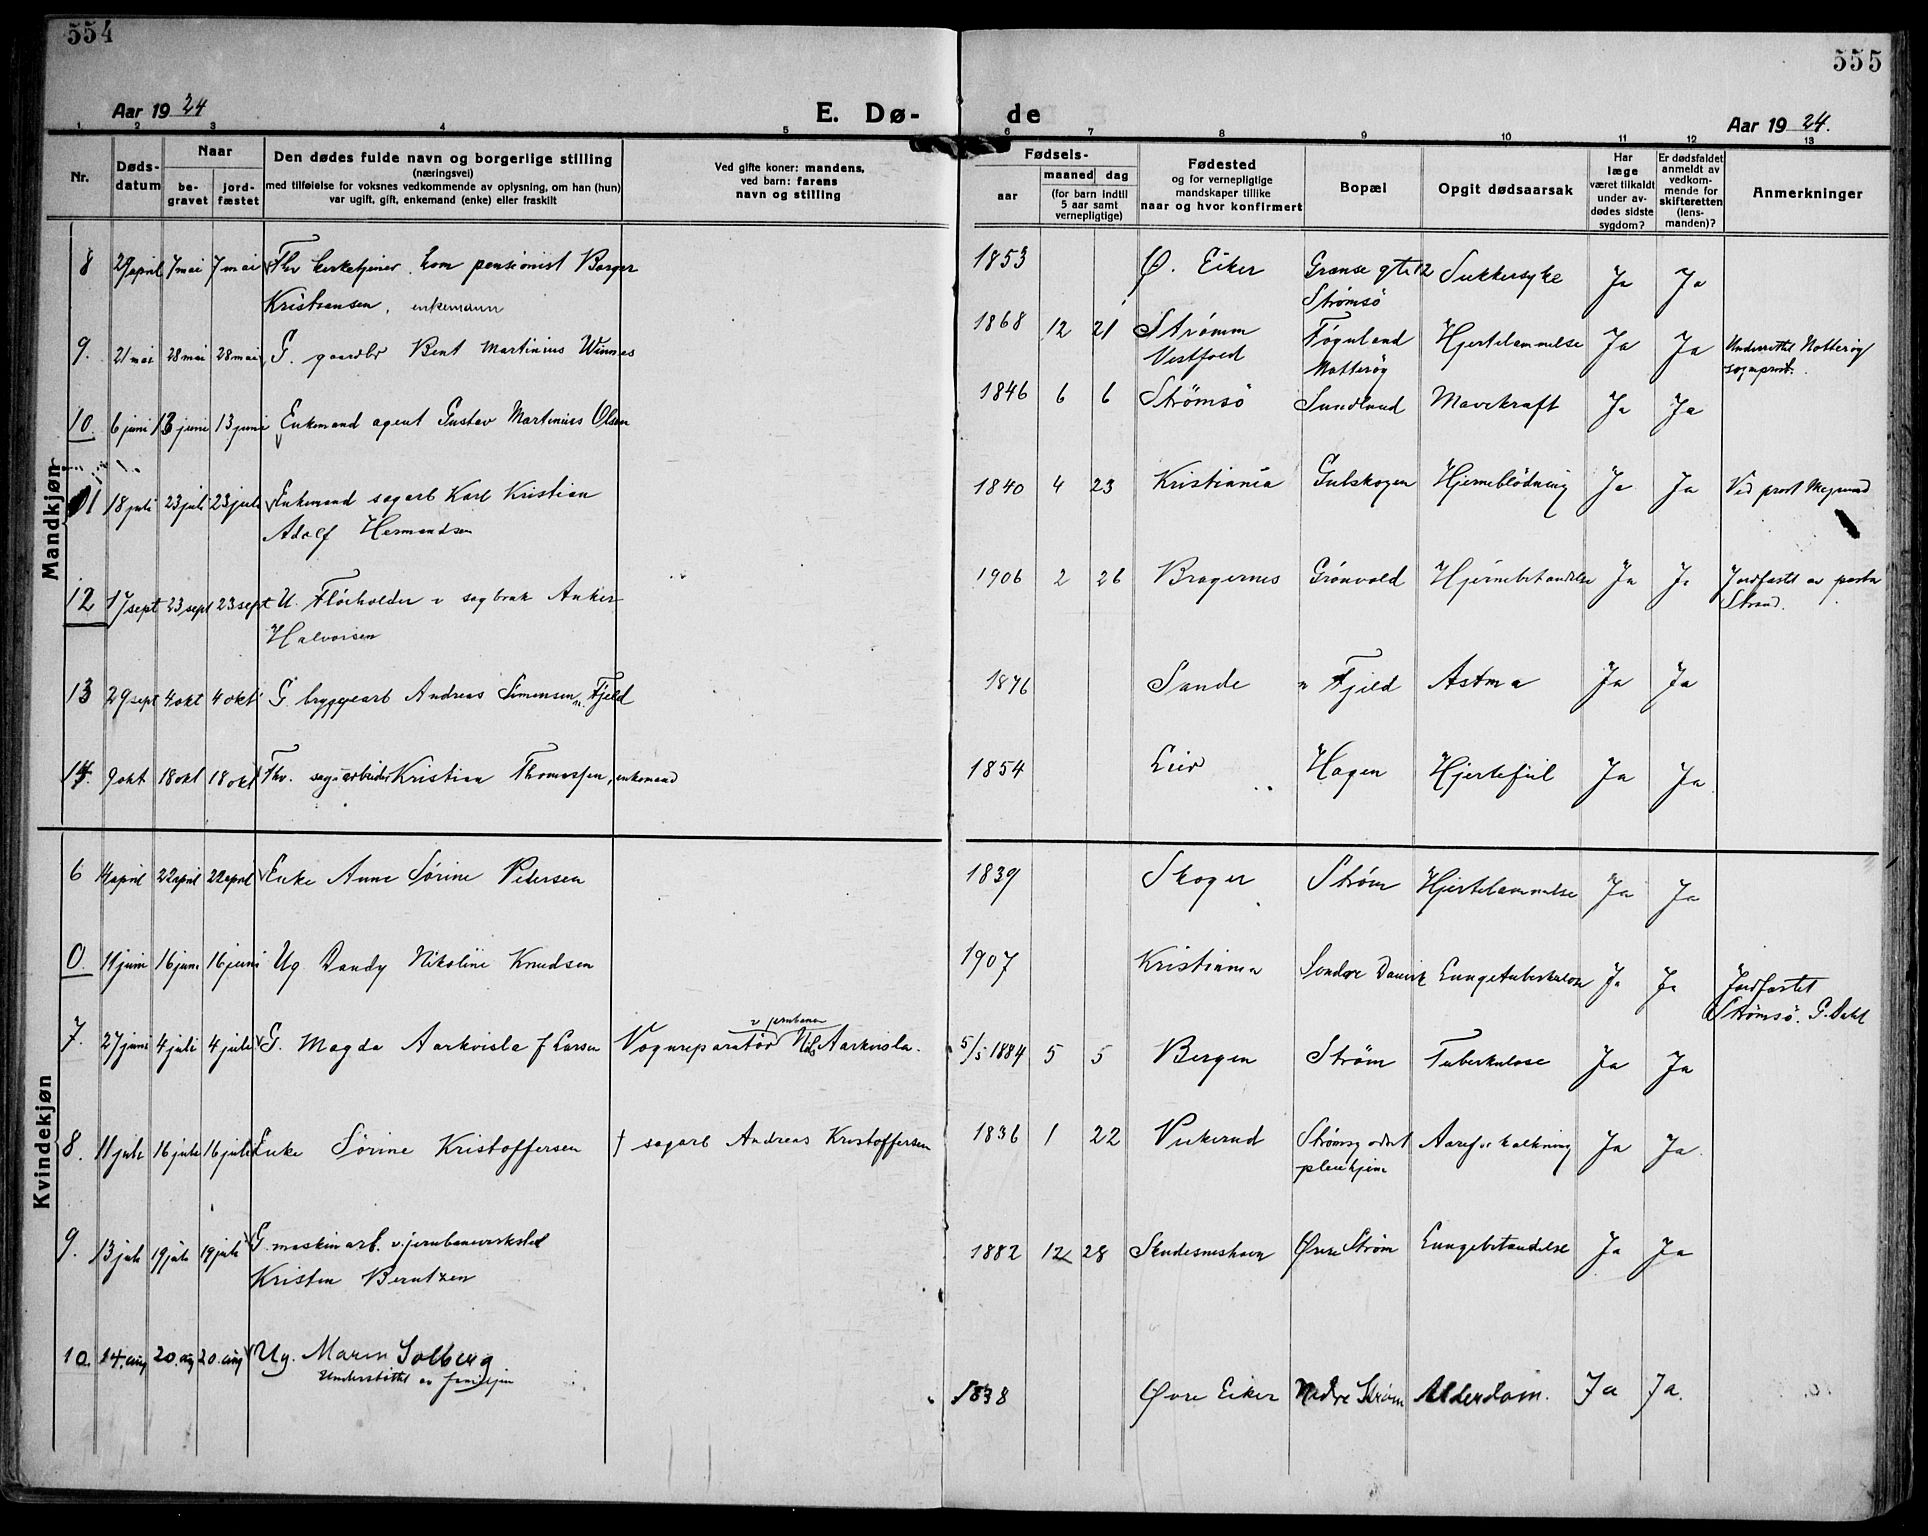 554
555
Aar 1924
E. Dø-
de
Aar 1924.
1 2 3 4 5 6 7 8 9 10 11 12 13
Nr.
Døds-
datum
Naar
be-
gravet
jord-
fæstet
Den dødes fulde navn og borgerlige stilling
(næringsvei)
med tilføielse for voksnes vedkommende av oplysning, om han (hun)
var ugift, gift, enkemand (enke) eller fraskilt
Ved gifte koner: mandens,
ved barn: farens
navn og stilling
Fødsels-
aar
maaned dag
(for barn indtil
5 aar samt
vernepligtige)
Fødested
og for vernepligtige
mandskaper tillike
naar og hvor konfirmert
Bopæl
Opgit dødsaarsak
Har
læge
været tilkaldt
under av-
dødes sidste
sygdom?
Er dødsfaldet
anmeldt av
vedkom-
mende for
skifteretten
(lens-
manden)?
Anmerkninger
Mandkjøn
8 29 april 7 mai 7 mai Fhv kirketjener, kom pensionist Borger 1853 Ø. Eiker Grænse gte 12 Sukkersyke Ja Ja
Kristiansen, enkemann Strømsö
9. 21 mai 28 mai 28 mai G. gaardbr Bent Martinius Winnes 1868 12 21 Strömm Föynland Hjertelammelse Ja Ja Underrettet Nötteröy
Vestfold Nötteröy sogneprest.
10. 6 juni 13 juni 13 juni Enkemand agent Gustav Martinius Olsen 1846 6 6 Strömsö Sundland Mavekraft Ja Ja
11 18 juli 23 juli 23 juli Enkemand sagarb Karl Kristian 1840 4 23 Kristiania Gulskogen Hjerneblödning Ja Ja Ved prost
Adolf Hermandsen
12 17 sept 23 sept 23 sept U. Flöiholder v sagbruk Anker 1906 2 26 Bragernes Grönvold Hjernebetændelse Ja Ja Jordfæstet av pastor
Halvorsen Strand.
13 29 sept 4 okt 4 okt G bryggearb Andreas Simensen n. Fjeld 1876 Sande n Fjeld Astma Ja Ja
14. 9 okt 18 okt 18 okt Fhv. sagarbeider Kristian Thomassen, enkemand 1854 Lier Hagen Hjertefeil Ja Ja
Kvindekjøn
6 14 april 22 april 22 april Enke Anne Sørine Pedersen 1839 Skoger Strøm Hjertelammelse Ja Ja
0. 11 juni 16 juni 16 juni Ug Dandy Nikoline Knudsen 1907 Kristiania Söndre Danvik Lungetuberkulose Ja Ja Jordfæstet
Strømsö. G. Dahl
7. 27 juni 4 juli 4 juli G. Magda Aarkvisla f Larsen Vognreparatör v jernbanen Nils Aarkvisla. 5/5 1884 5 5 Bergen Strøm Tuberkulose Ja Ja
8. 11 juli 16 juli 16 juli Enke Sörine Kristoffersen † sagarb Andreas Kristoffersen 1836 1 22 Vikerud Aareforkalkning Ja Ja
pleiehjem
9. 13 juli 19 juli 19 juli G. maskinarb. v. jernbaneverksted 1882 12 28 Skudesneshavn Övre Strøm Lungebetændelse Ja Ja
Kristen Berntzen
10. 14. aug 20. aug 20. aug Ug. Maren Solberg 1838 Övre Eiker Nedre Strøm Alderdom. Ja Ja.
Understöttet av familjen